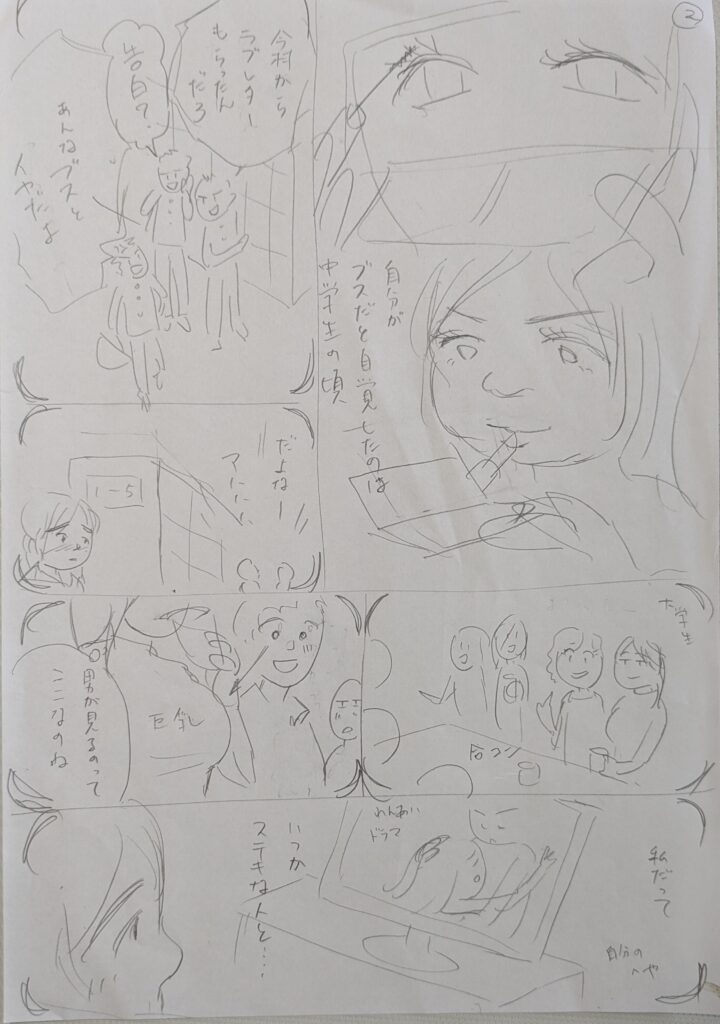 2
自分が
ブスだと自覚したのは
中学生の頃
今村から
ラブレター
もらったん
だろ
告白?
あんなブスと
イヤだよ
だよねー
アハハハ
1-5
大学生
合コン
巨乳
男が見るのって
ここなのね
私だって
自分の
へや
れんあい
ドラマ
いつか
ステキな人と…